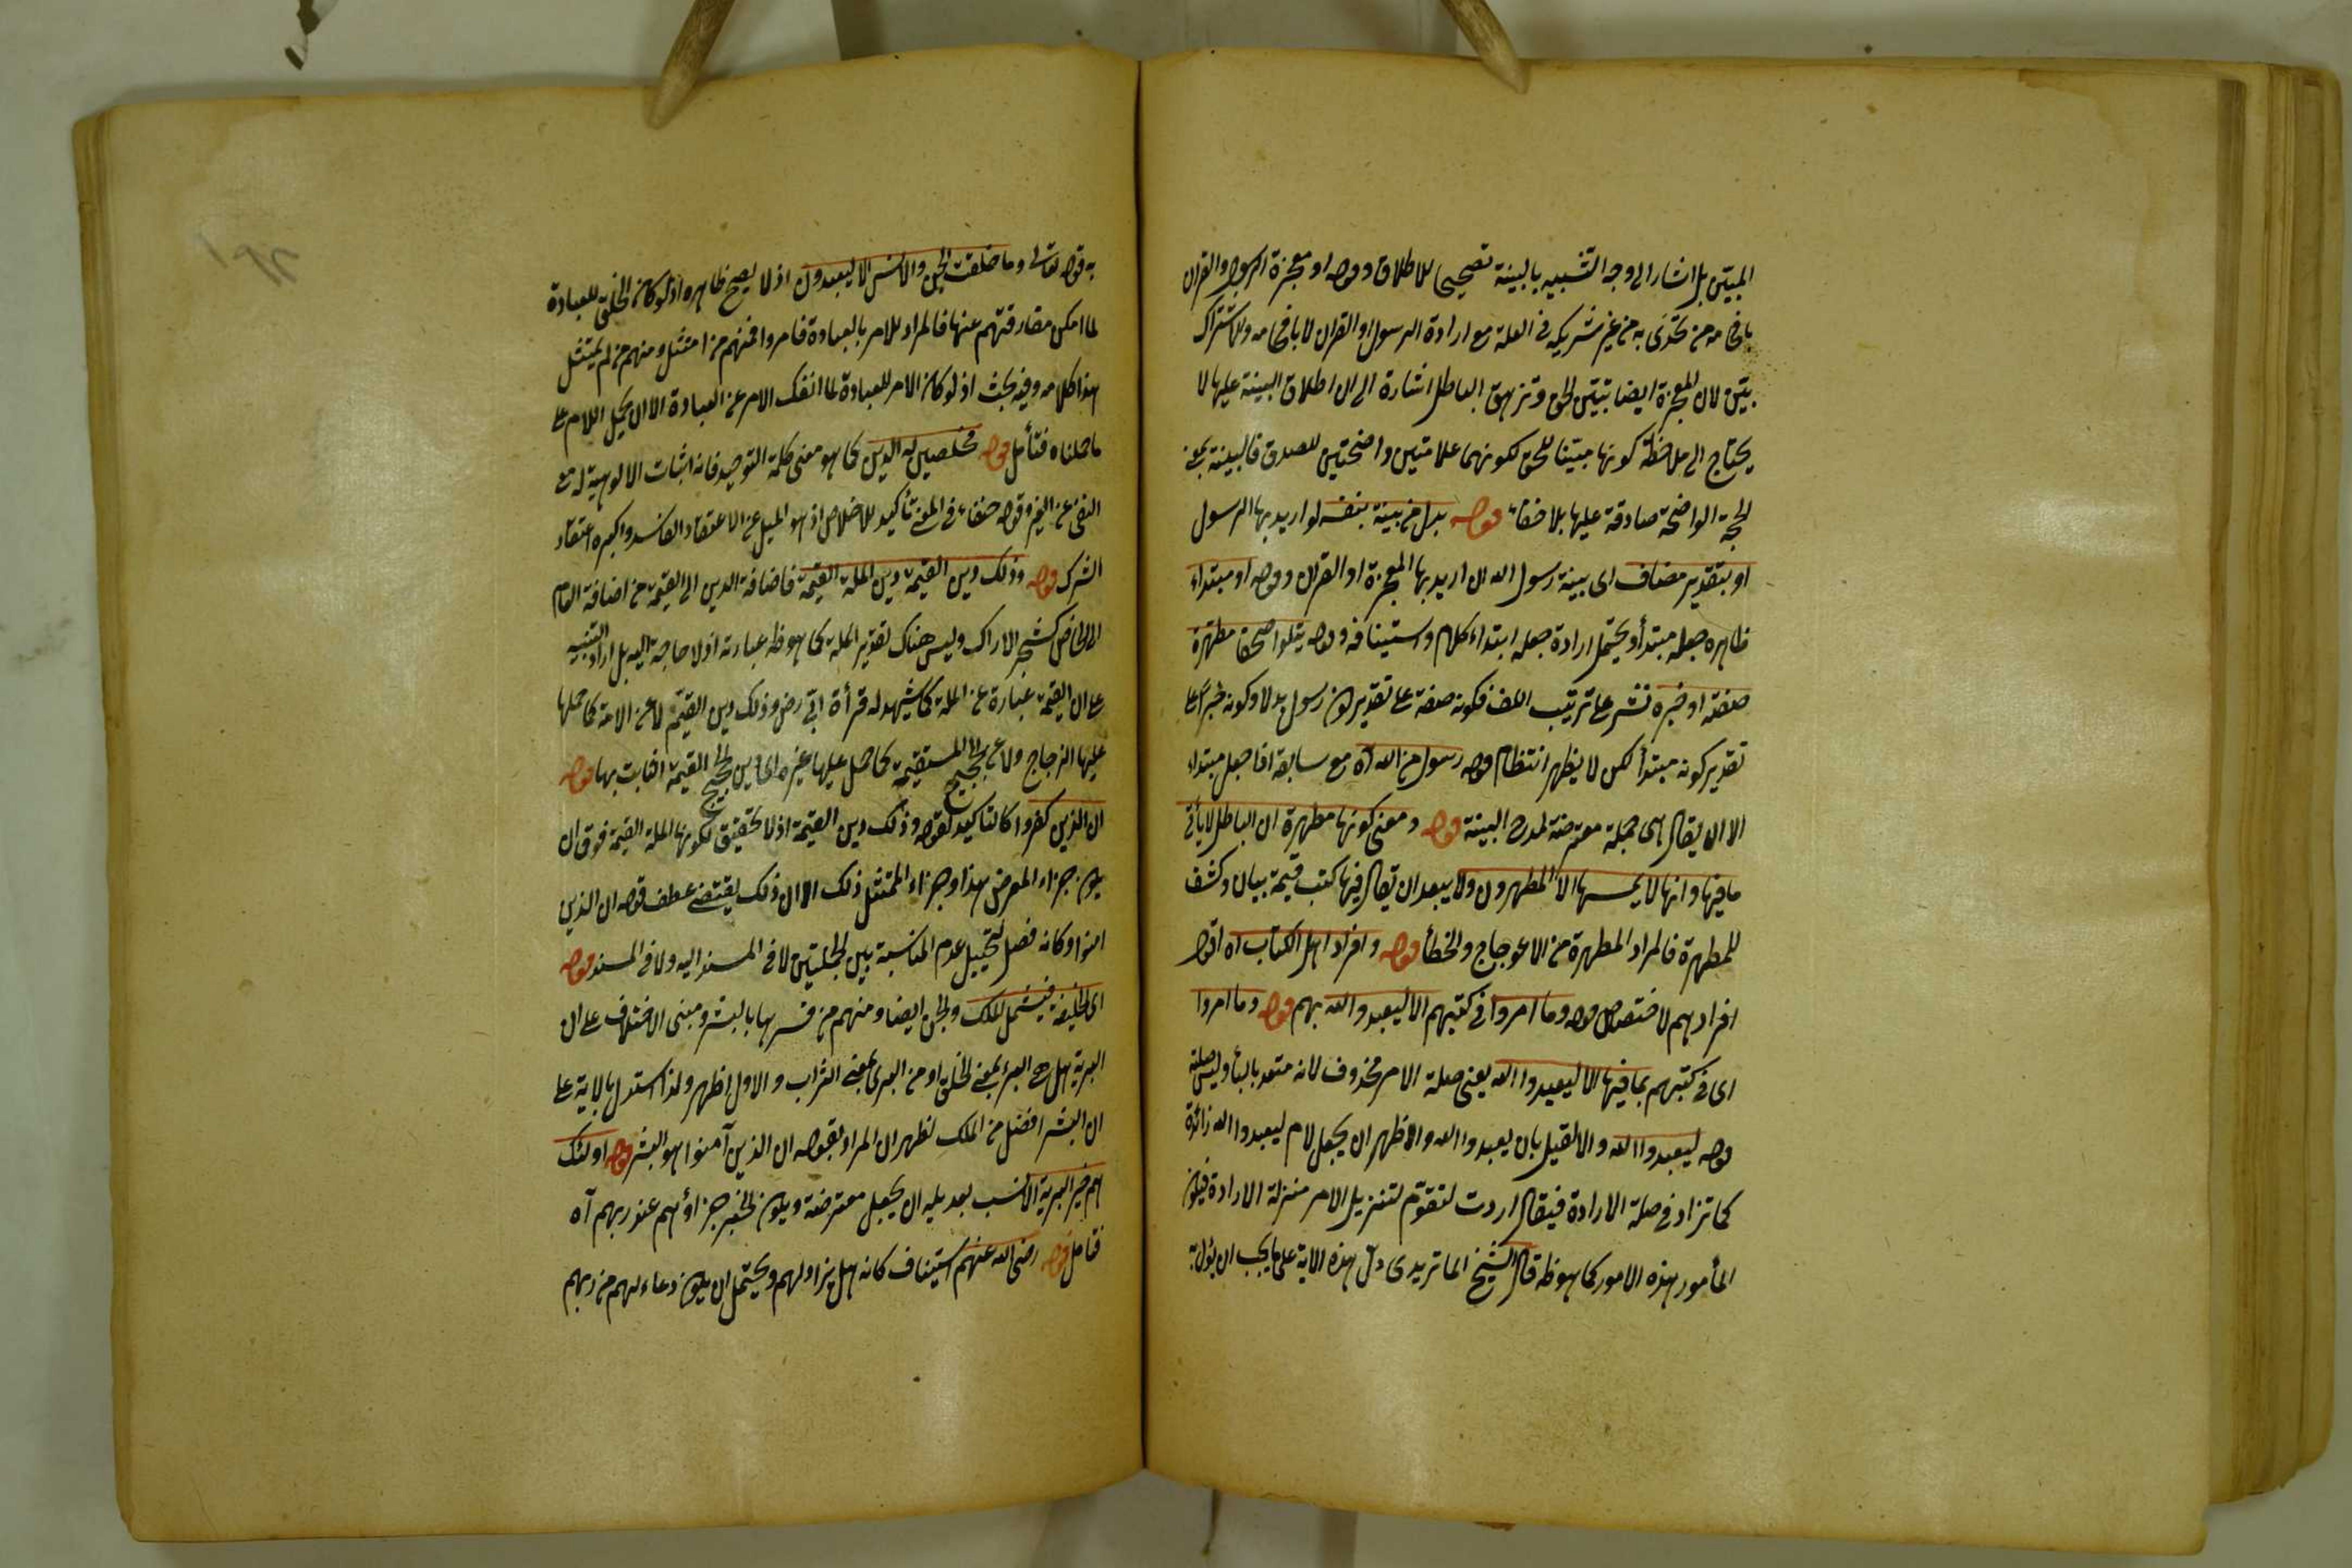 المبين بل اشار الى وجه التشبيه بالبينة تصحيحا للاطلاق وقوله او معجزة الرسول والقران
بافحامه من تحدى به من غير شريكه في العلة مع ارادة الرسول او القران لا بافحامه ولاشتراك
بتين لان المعجزة ايضا تبين الحق وتزهق الباطل اشارة الى ان اطلاق البينة عليها لا
يحتاج الى ملاحظة كونها مبينا للحق لكونهما علامتين واضحتين للصدق فالبينة بمعنى
الحجة الواضحة صادقة عليها بلا خفاء قوله بدل من بينة بنفسه لو اريد بها الرسول
او بتقدير مضاف اى بينة رسول الله ان اريد بها المعجزة او القران وقوله او مبتداء
ظاهره جعله مبتدأ ويحتمل ارادة جعله ابتداء كلام واستينافه وقوله يتلوا صحفا مطهرة
صفته او خبره نشر على ترتيب اللف فكونه صفة على تقدير كون رسول بدلا وكونه خبرا على
تقدير كونه مبتدأ لكن لا يظهر انتظام قوله رسول من الله آه مع سابقه اذا جعل مبتداء
الا ان يقال هى جملة معترضة لمدح البينة قوله ومعنى كونها مطهرة ان الباطل لا يأتى
ما فيها وانها لا يمسها الا المطهرون ولا يبعد ان يقال فيها كتب قيمة بيان وكشف
للمطهرة فالمراد المطهرة من الاعوجاج والخطأ قوله وافراد اهل الكتاب آه اقول
افرادهم لاختصاص قوله وما امروا في كتبهم الا ليعبدوا الله بهم قوله وما امروا
اى في كتبهم بما فيها الا ليعبدوا الله يعنى صلة الامر محذوف لانه متعد بالباء وليس صلته
قوله ليعبدوا الله والا لقيل بان يعبدوا الله والاظهر ان يجعل لام ليعبدوا الله زائدة
كما تزاد في صلة الارادة فيقال اردت لتقوم لتنزيل الامر منزلة الارادة فيكون
المأمور هذه الامور كما هو ظ قال الشيخ الماتريدى دل هذه الاية على ما يجب ان يؤل به
به قوله تعالى وما خلقت الجن والانس الا ليعبدون اذ لا يصح ظاهره اذ لو كان الخلق للعبادة
لما امكن مفارقتهم عنها فالمراد للامر بالعبادة فامروا فمنهم من امتثل ومنهم من لم يمتثل
هذا كلامه وفيه بحث اذ لو كان الامر للعبادة لما انفك الامر عن العبادة الا ان يحمل اللام على
ما حملناه فتأمل قوله مخلصين له الدين كما هو معنى كلمة التوحيد فانه اثبات الالوهية له مع
النفى عن الغير وقوله حنفاء في المعنى تأكيد للاخلاص اذ هو الميل عن الاعتقاد الفاسد واكبره اعتقاد
الشرك قوله وذلك دين القيمة دين الملة القيمة فاضافة الدين الى القيمة من اضافة العام
الى الخاص كشجر الاراك وليس هناك تقدير الملة كما هو ظ عبارته اذ لا حاجة اليه بل اراد التنبيه
على ان القيمة عبارة عن الملة كما يشهد له قرأة ابي رض وذلك دين القيمة لا عن الامة كما حملها
عليها الزجاج ولا عن الحجج المستقيمة كما حمل عليها غيره اى دين الحجج القيمة الثابت بها قوله
ان الذين كفروا كالتاكيد لقوله وذلك دين القيمة اذ لا تحقيق لكونها الملة القيمة فوق ان
يكون جزاء المعرض هذا وجزاء الممتثل ذلك الا ان ذلك يقتضى عطف قوله ان الذين
امنوا وكانه فصل لتخييل عدم المناسبة بين الجملتين لا في المسند اليه ولا في المسند قوله
اى الخليقة فيشمل الملك والجن ايضا ومنهم من فسرها بالبشر ومبنى الاختلاف على ان
البرية هل هى البرء بمعنى الخلق او من البرى بمعنى التراب والاول اظهر ولذا استدل بالاية على
ان البشر افضل من الملك لظهر ان المراد بقوله ان الذين آمنوا هو البشر قوله اولئك
هم خير البرية الانسب بعديله ان يجعل معترضة ويكون الخبر جزاؤهم عند ربهم آه
فتامل قوله رضى الله عنهم استيناف كانه هل يزاد لهم ويحتمل ان يكون دعاء لهم من ربهم